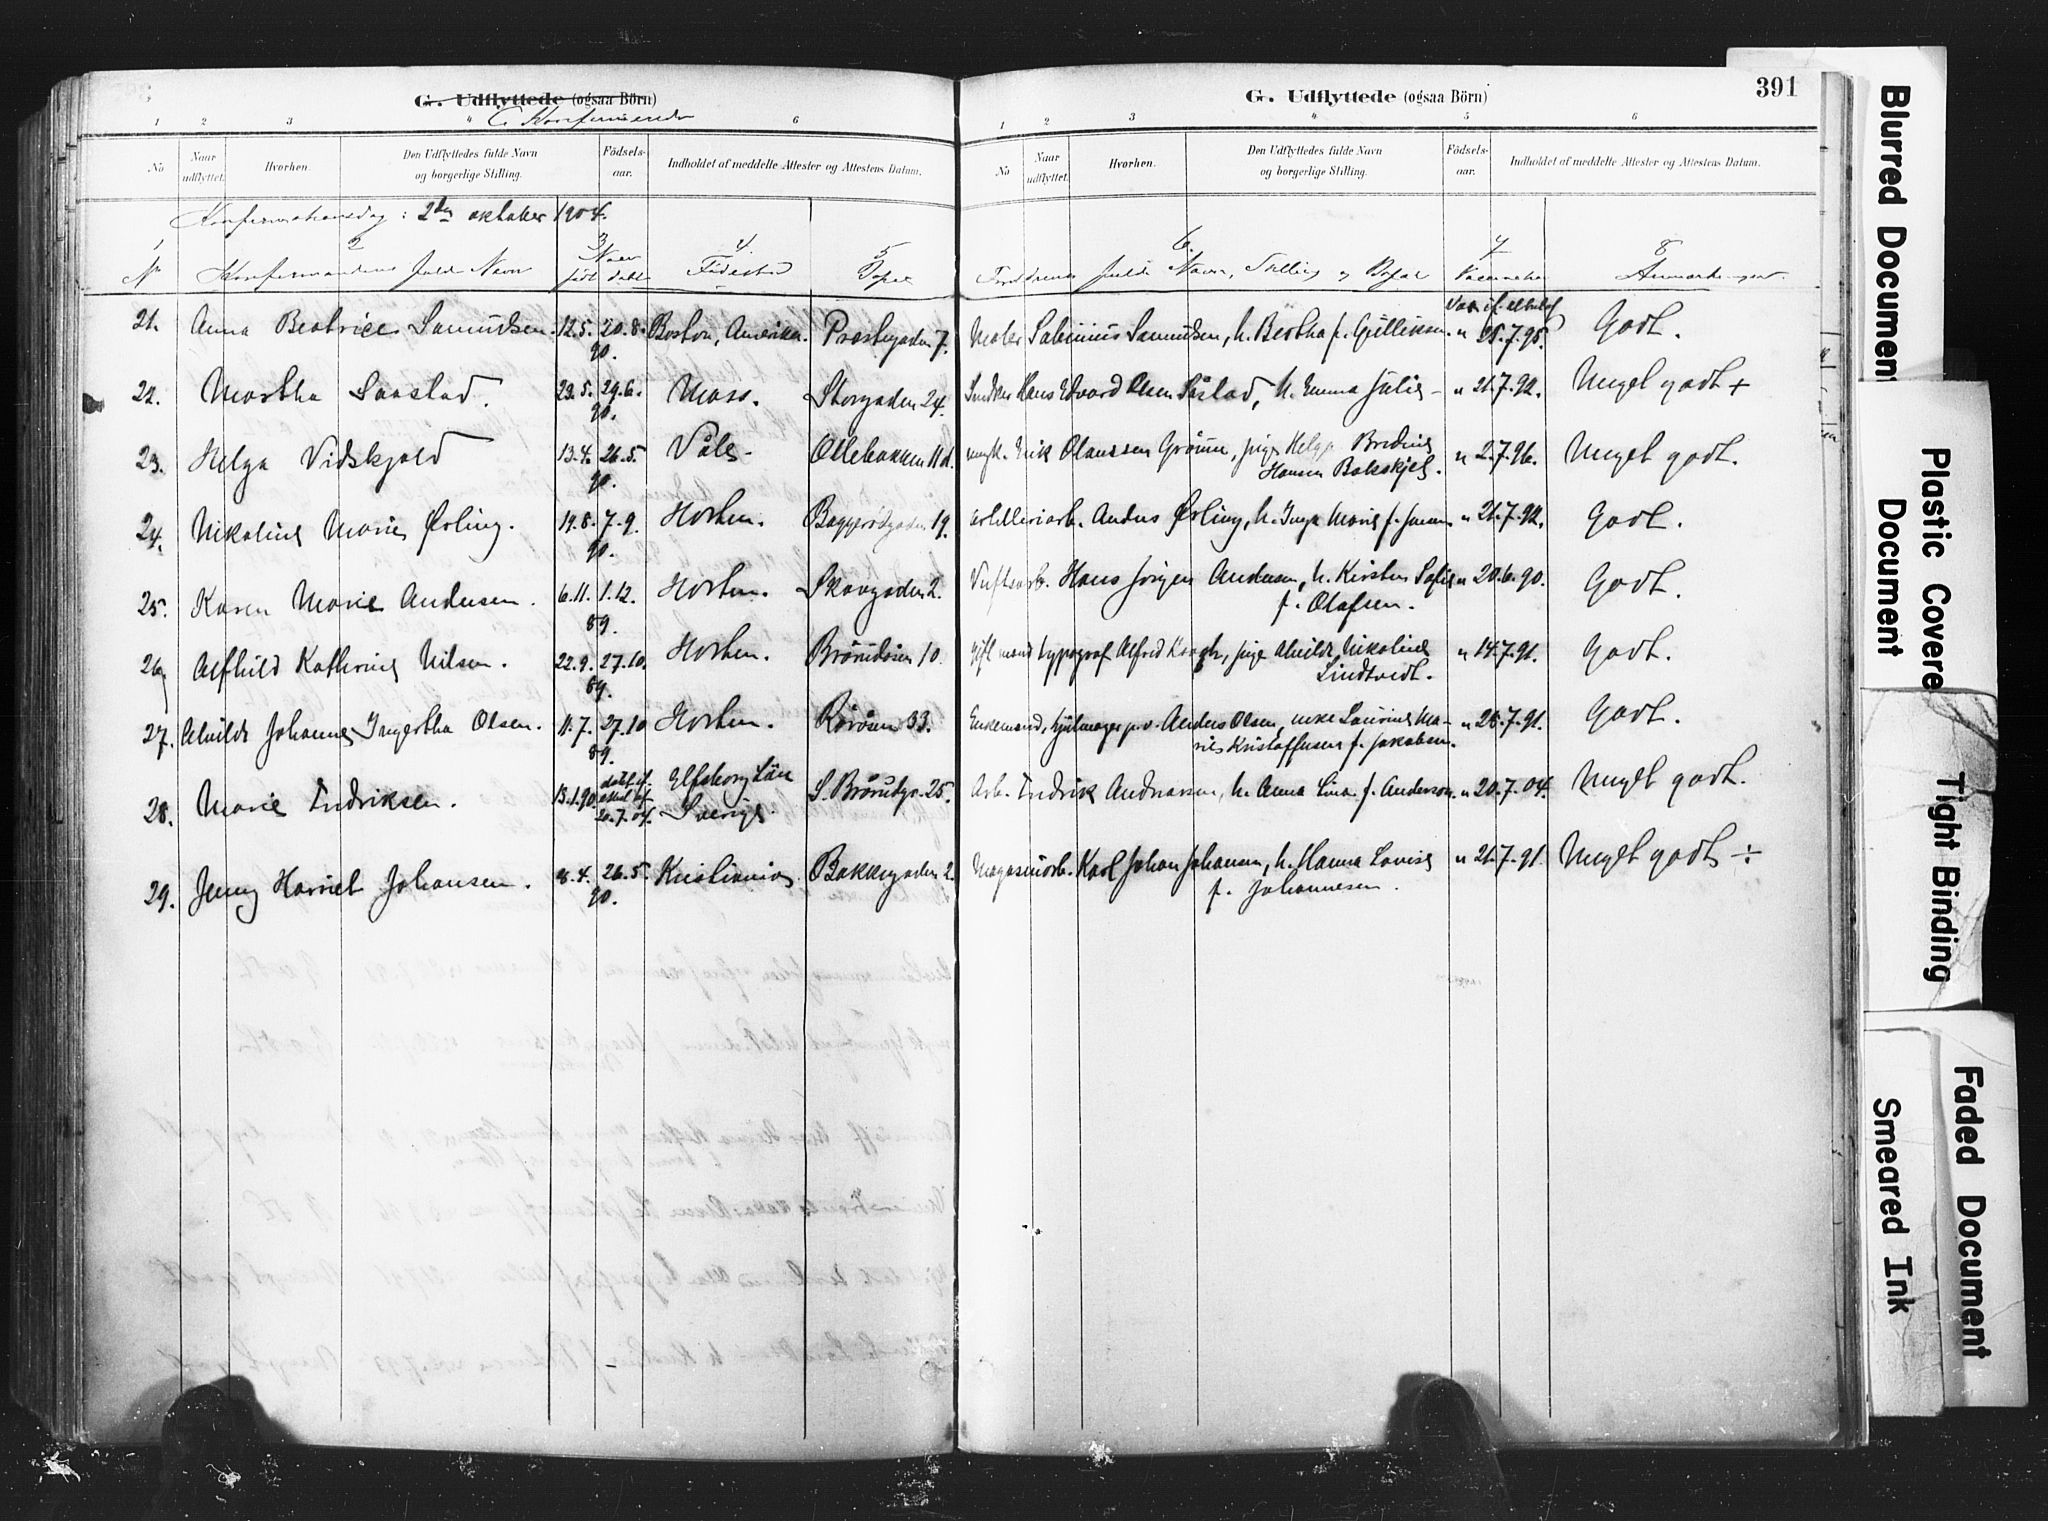 G. Udflyttede (ogsaa Börn)
C Konfirmerede
1 2 3 4 6
No Naar udflyttet. Hvorhen. Den Udflyttedes fulde Navn og borgerlige Stilling. Födsels-aar. Indholdet af meddelte Attester og Attestens Datum.
Konfirmationsdag: 2den oktober 1904.
1 2 3 4. 5
No Konfirmandens fulde Navn Naar født døbt Fødested Bopæl
21. Anna Beatrice Samuelsen. 12.5. 20.8. Boston, Amerika. Præstegaden 7.
90.
22. Martha Saastad. 23.5. 29.6. Moss. Storgaden 24.
90.
23. Helga Vidskjold 13.4. 26.5. Våle. Ollebakken 11d.
90.
24. Nikoline Marie Ørling. 19.8. 7.9. Horten. Baggerødgaden 19.
90.
25. Karen Marie Andersen. 6.11. 1.12. Horten. Skovgaden 2.
89.
26 Alfhild Kathrine Nilsen. 22.9. 27.10. Horten. Brårudåsen 10.
89.
27. Alvilde Johanne Ingertha Olsen. 11.7. 27.10 Horten. Røråsen 33.
89.
28. Marie Fredriksen. 13.1.90. døbt if. 20.7.04. Elfsborg Län Sverige. S. Brårudgr. 25.
29. Jenny Harriet Johansen. 8.4. 26.5. Kristiania Bakkegaden 2.
90.
G. Udflyttede (ogsaa Börn)
391
1 2 3 4 5 6
No Naar udflyttet. Hvorhen. Den Udflyttedes fulde Navn og borgerlige Stilling. Födsels-aar. Indholdet af meddelte Attester og Attestens Datum.
6. 7 8
Forældrenes fulde Navn, Stilling og Bopæl Vaccineret Anmærkninger.
Vac. if.
Maler Sabinius Samuelsen, h. Bertha f. Gulliksen. " 25.7.95. Godt.
Snedker Hans Edvard Olsen Såstad, h. Emma Julie - " 21.7.92. Meget godt +
ungk. Erik Olaussen Grønn, pige Helga Bredine " 2.7.96. Meget godt.
Hansen Bakskjel.
Artilleriarb. Anders Ørling, h. Inga Marie f. Jensen " 21.7.92. Godt.
Værftsarb. Hans Jørgen Andersen, h. Kirsten Sofie " 20.6.90. Godt.
f. Olafsen.
Gift mand typograf Alfred Koch, pige Alvilde Nikoline " 14.7.91. Godt.
Lindtvedt.
Enkemand, hjulmager p.v. Anders Olsen, enke Laurine Ma- " 28.7.91. Godt.
rie Kristoffersen f. Jakobsen.
Arb. Fredrik Andreassen, h. Anna Lina f. Anderson. " 20.7.04. Meget godt.
Magasinarb. Karl Johan Johansen, h. Hanna Lovise " 21.7.91. Meget godt ÷
f. Johannesen.
Blurred Document
Plastic Covere
Document
Tight Binding
Faded Document
Smeared Ink